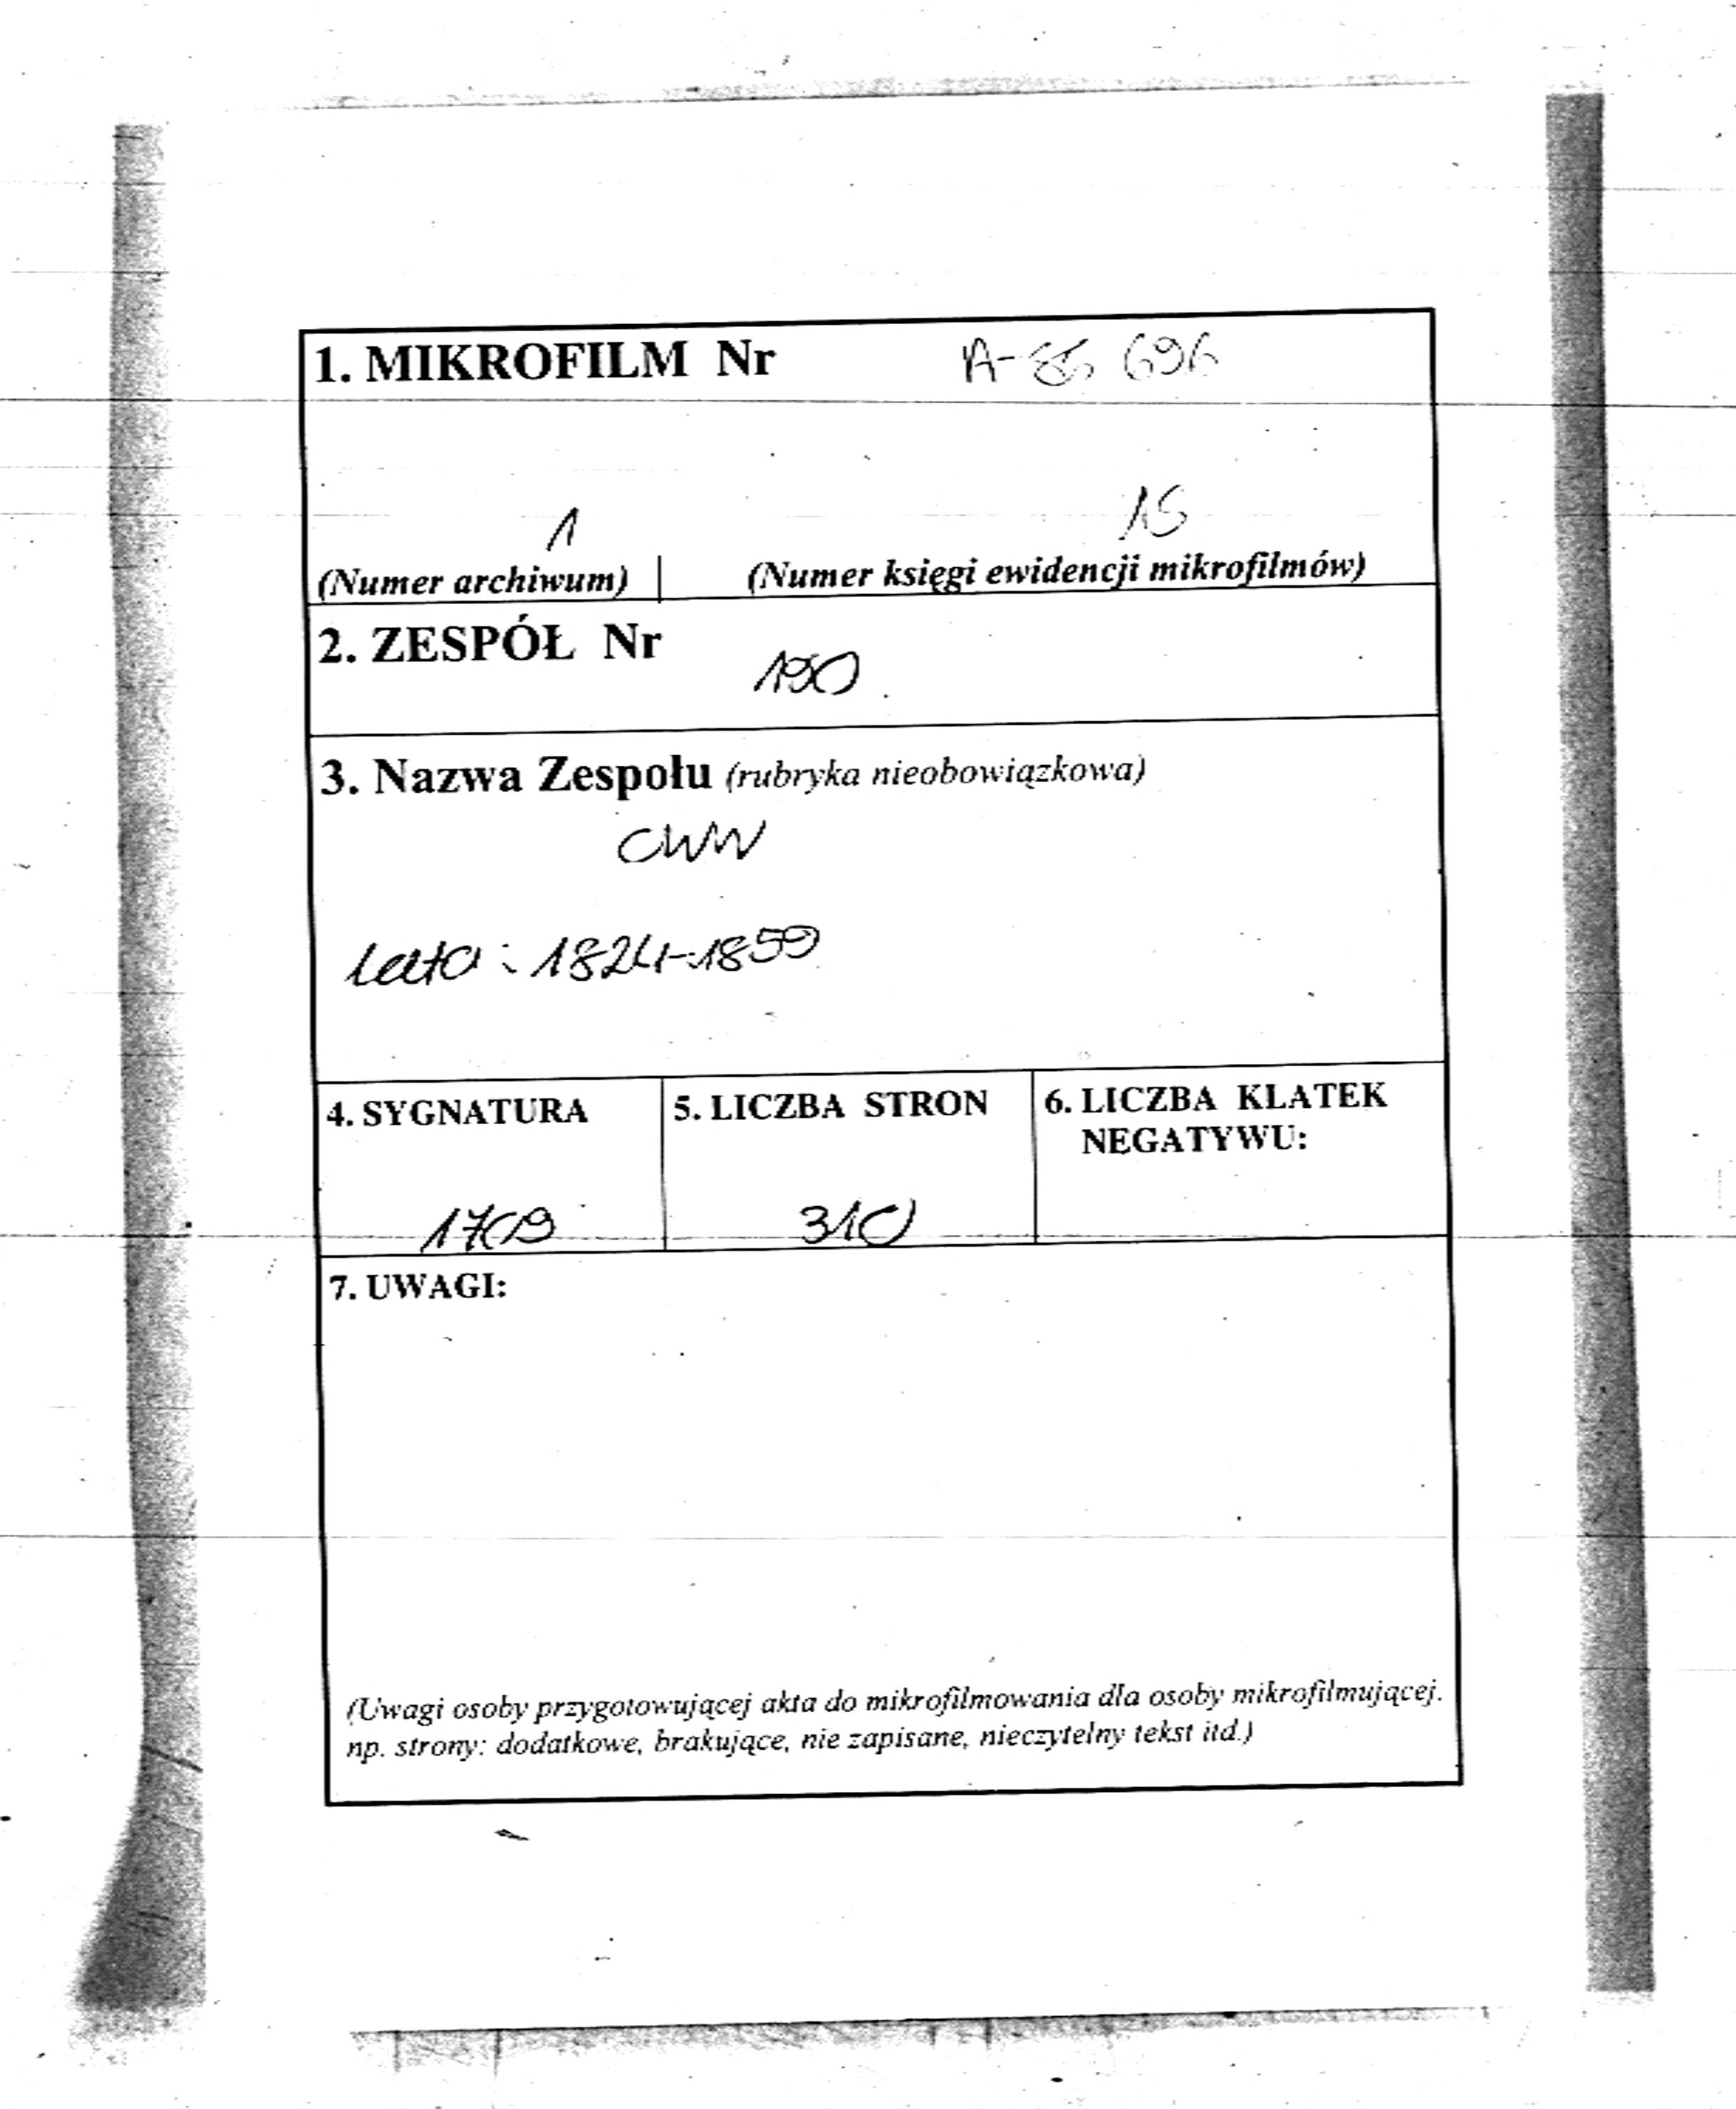 1. MIKROFILM Nr A- 696
1 15
(Numer archiwum) (Numer księgi ewidencji mikrofilmów)
2. ZESPÓŁ Nr
190
3. Nazwa Zespołu (rubryka nieobowiązkowa)
CWW
Lata: 1824-1859
4. SYGNATURA 5. LICZBA STRON 6. LICZBA KLATEK
NEGATYWU:
1709 310
7. UWAGI:
(Uwagi osoby przygotowującej akta do mikrofilmowania dla osoby mikrofilmującej.
np. strony: dodatkowe, brakujące, nie zapisane, nieczytelny tekst itd.)